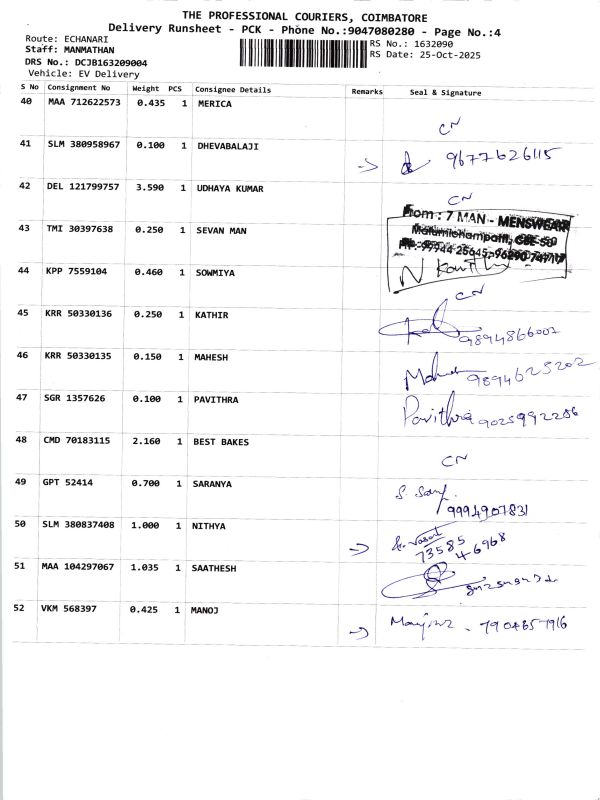 THE PROFESSIONAL COURIERS, COIMBATORE
Delivery Runsheet - PCK - Phone No.:9047080280 - Page No.:4
Route: ECHANARI
RS No.: 1632090
Staff: MANMATHAN
RS Date: 25-Oct-2025
DRS No.: DCJB163209004
Vehicle: EV Delivery
S No Consignment No Weight PCS Consignee Details Remarks Seal & Signature
40 MAA 712622573 0.435 1 MERICA
CN
41 SLM 380958967 0.100 1 DHEVABALAJI
9677626115
42 DEL 121799757 3.590 1 UDHAYA KUMAR
CN
43 TMI 30397638 0.250 1 SEVAN MAN
From : 7 MAN - MENSWEAR
44 KPP 7559104 0.460 1 SOWMIYA
CN
45 KRR 50330136 0.250 1 KATHIR
9894866007
46 KRR 50330135 0.150 1 MAHESH
9894625202
47 SGR 1357626 0.100 1 PAVITHRA
Pavithra 9025992286
48 CMD 70183115 2.160 1 BEST BAKES
CN
49 GPT 52414 0.700 1 SARANYA
9994907831
50 SLM 380837408 1.000 1 NITHYA
73585
46968
51 MAA 104297067 1.035 1 SAATHESH
52 VKM 568397 0.425 1 MANOJ